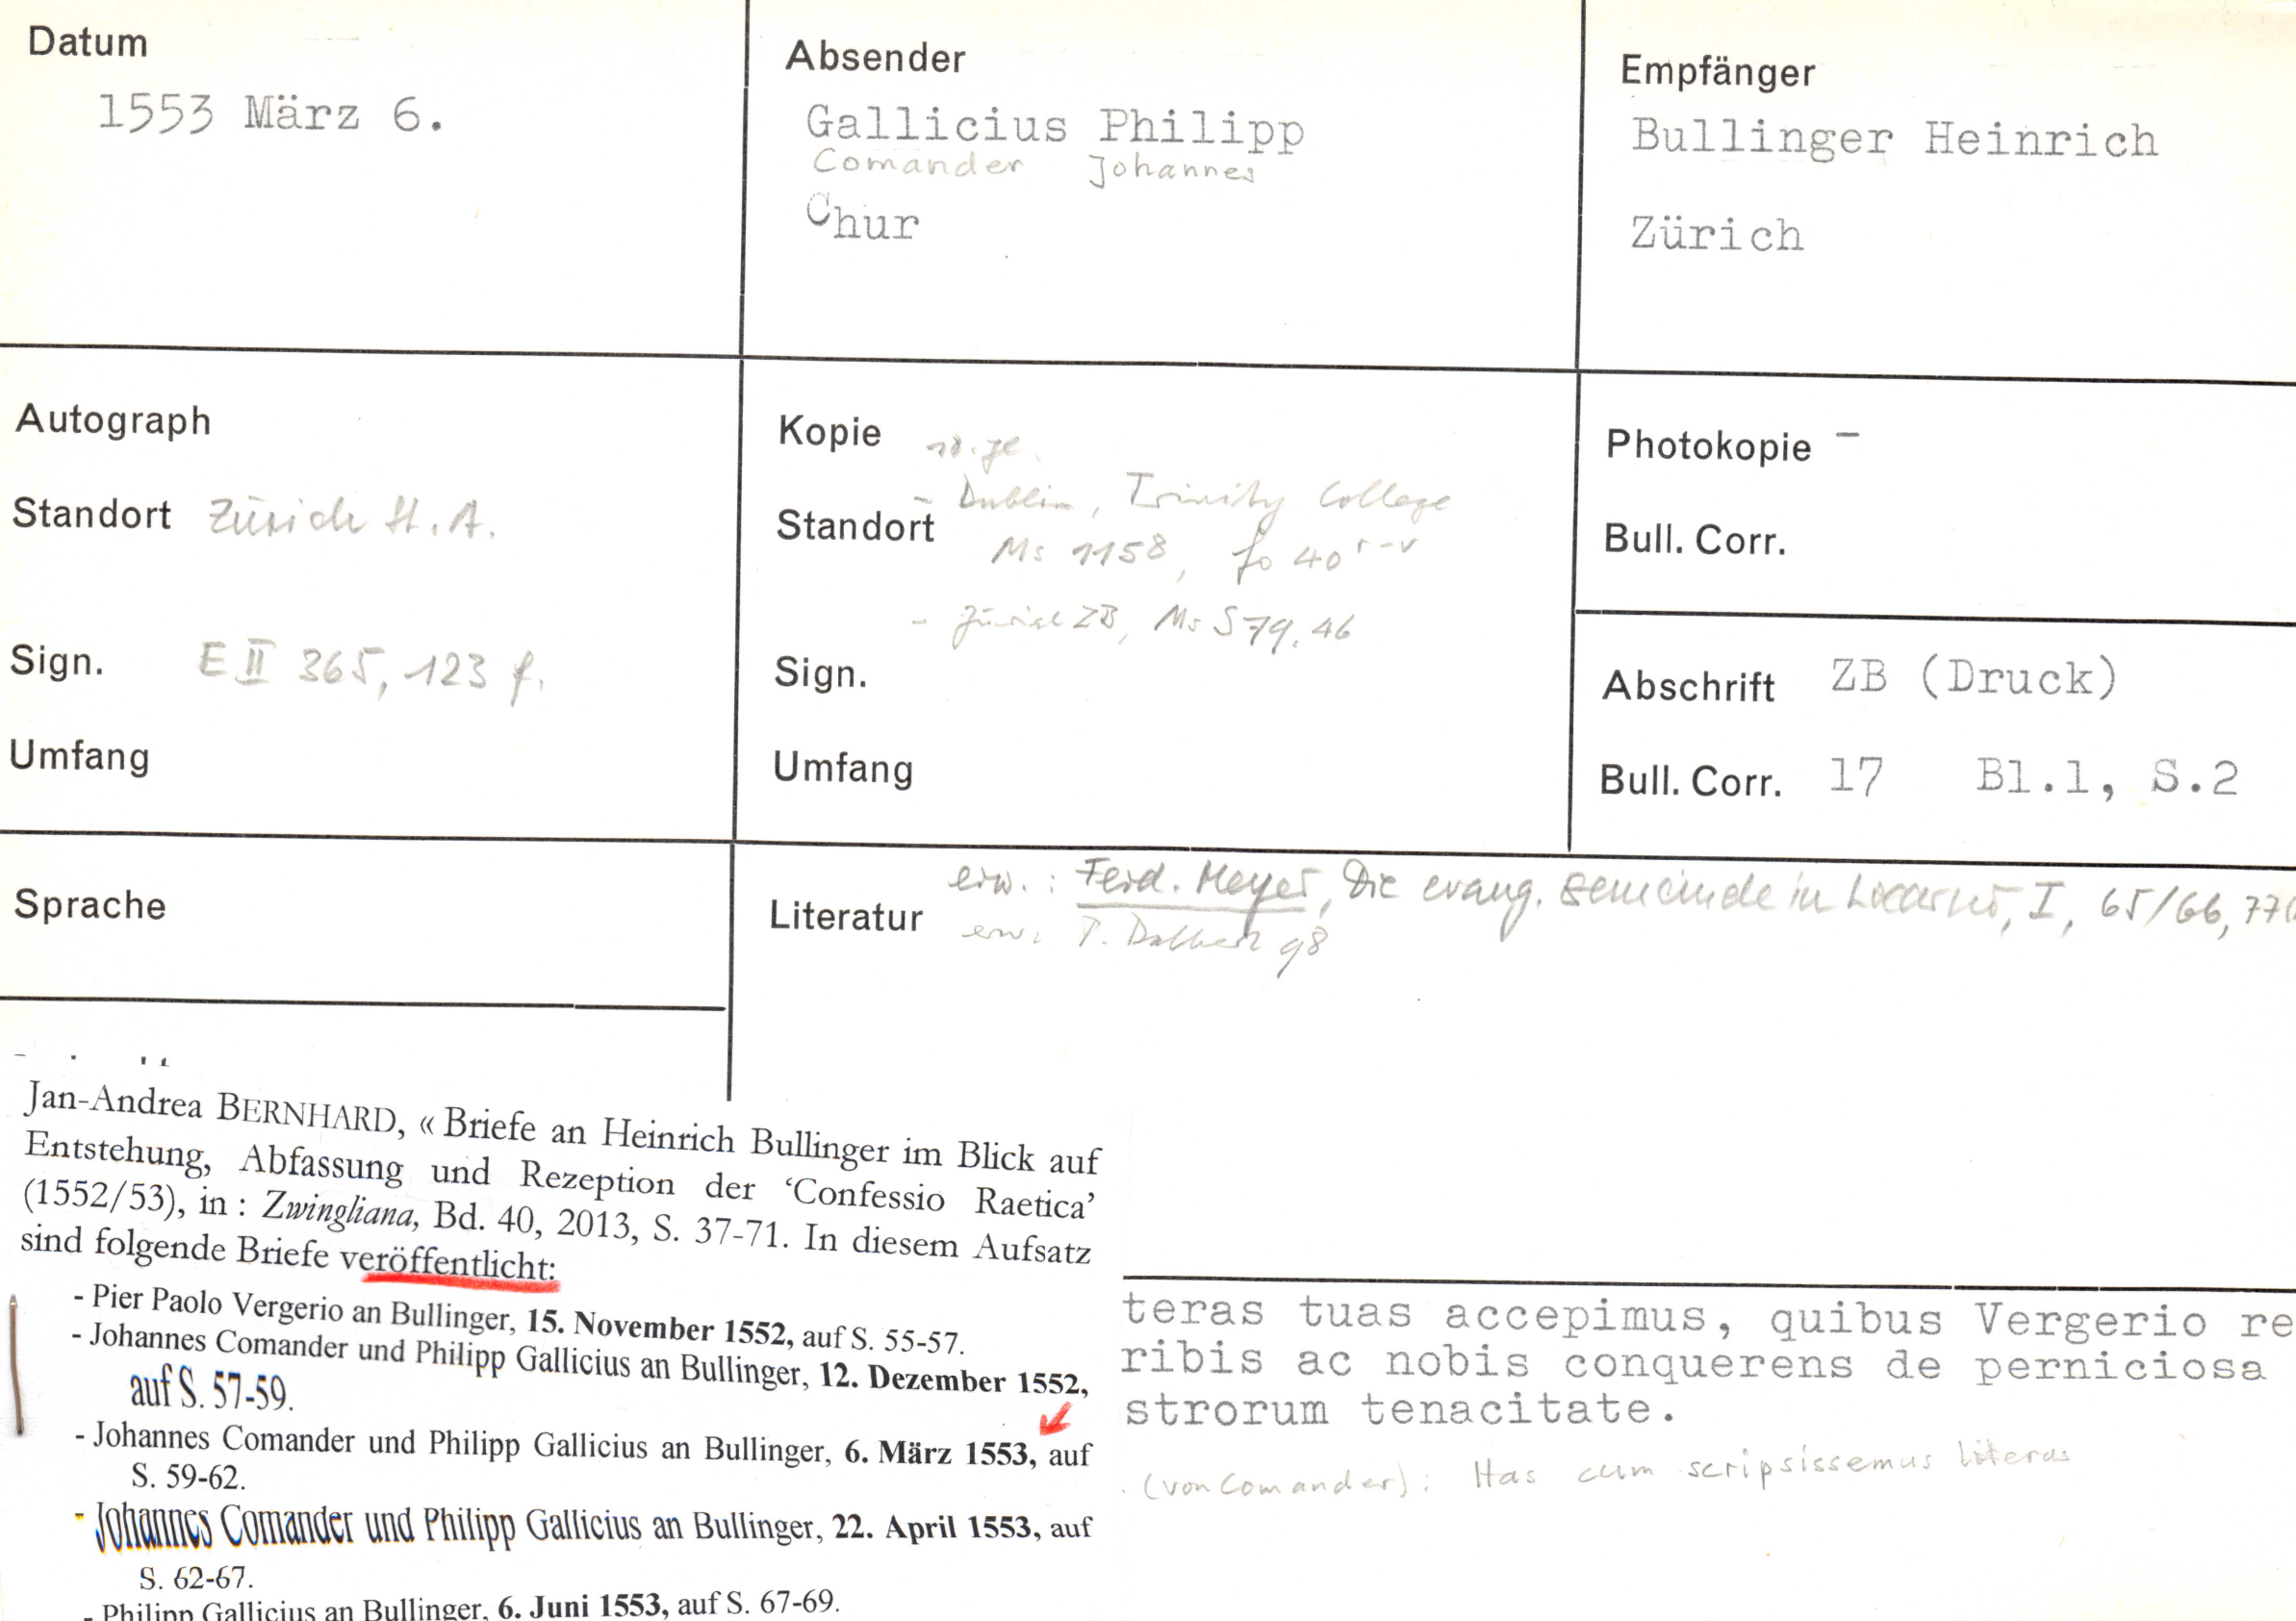 Datum
1553 März 6.
Absender
Gallicius Philipp
Comander Johannes
Chur
Empfänger
Bullinger Heinrich
Zürich
Autograph
Standort Zürich St. A.
Sign. E II 365, 123 f.
Umfang
Kopie
- Dublin, Trinity College
Standort
Ms 1158, fo 40 r-v
- Zürich ZB, Ms S 79, 46
Sign.
Umfang
Photokopie -
Bull. Corr.
Abschrift ZB (Druck)
Bull. Corr. 17 Bl.1, S.2
Sprache
Literatur
erw.: Ferd. Meyer, Die evang. Gemeinde in Locarno, I, 65/66, 77
erw.
Jan-Andrea BERNHARD, « Briefe an Heinrich Bullinger im Blick auf
Entstehung, Abfassung und Rezeption der ‘Confessio Raetica’
(1552/53), in : Zwingliana, Bd. 40, 2013, S. 37-71. In diesem Aufsatz
sind folgende Briefe veröffentlicht:
- Pier Paolo Vergerio an Bullinger, 15. November 1552, auf S. 55-57.
- Johannes Comander und Philipp Gallicius an Bullinger, 12. Dezember 1552,
auf S. 57-59.
- Johannes Comander und Philipp Gallicius an Bullinger, 6. März 1553, auf
S. 59-62.
- Johannes Comander und Philipp Gallicius an Bullinger, 22. April 1553, auf
S. 62-67.
- Philipp Gallicius an Bullinger, 6. Juni 1553, auf S. 67-69.
teras tuas accepimus, quibus Vergerio re
ribis ac nobis conquerens de perniciosa
strorum tenacitate.
(von Comander): Has cum scripsissemus literas